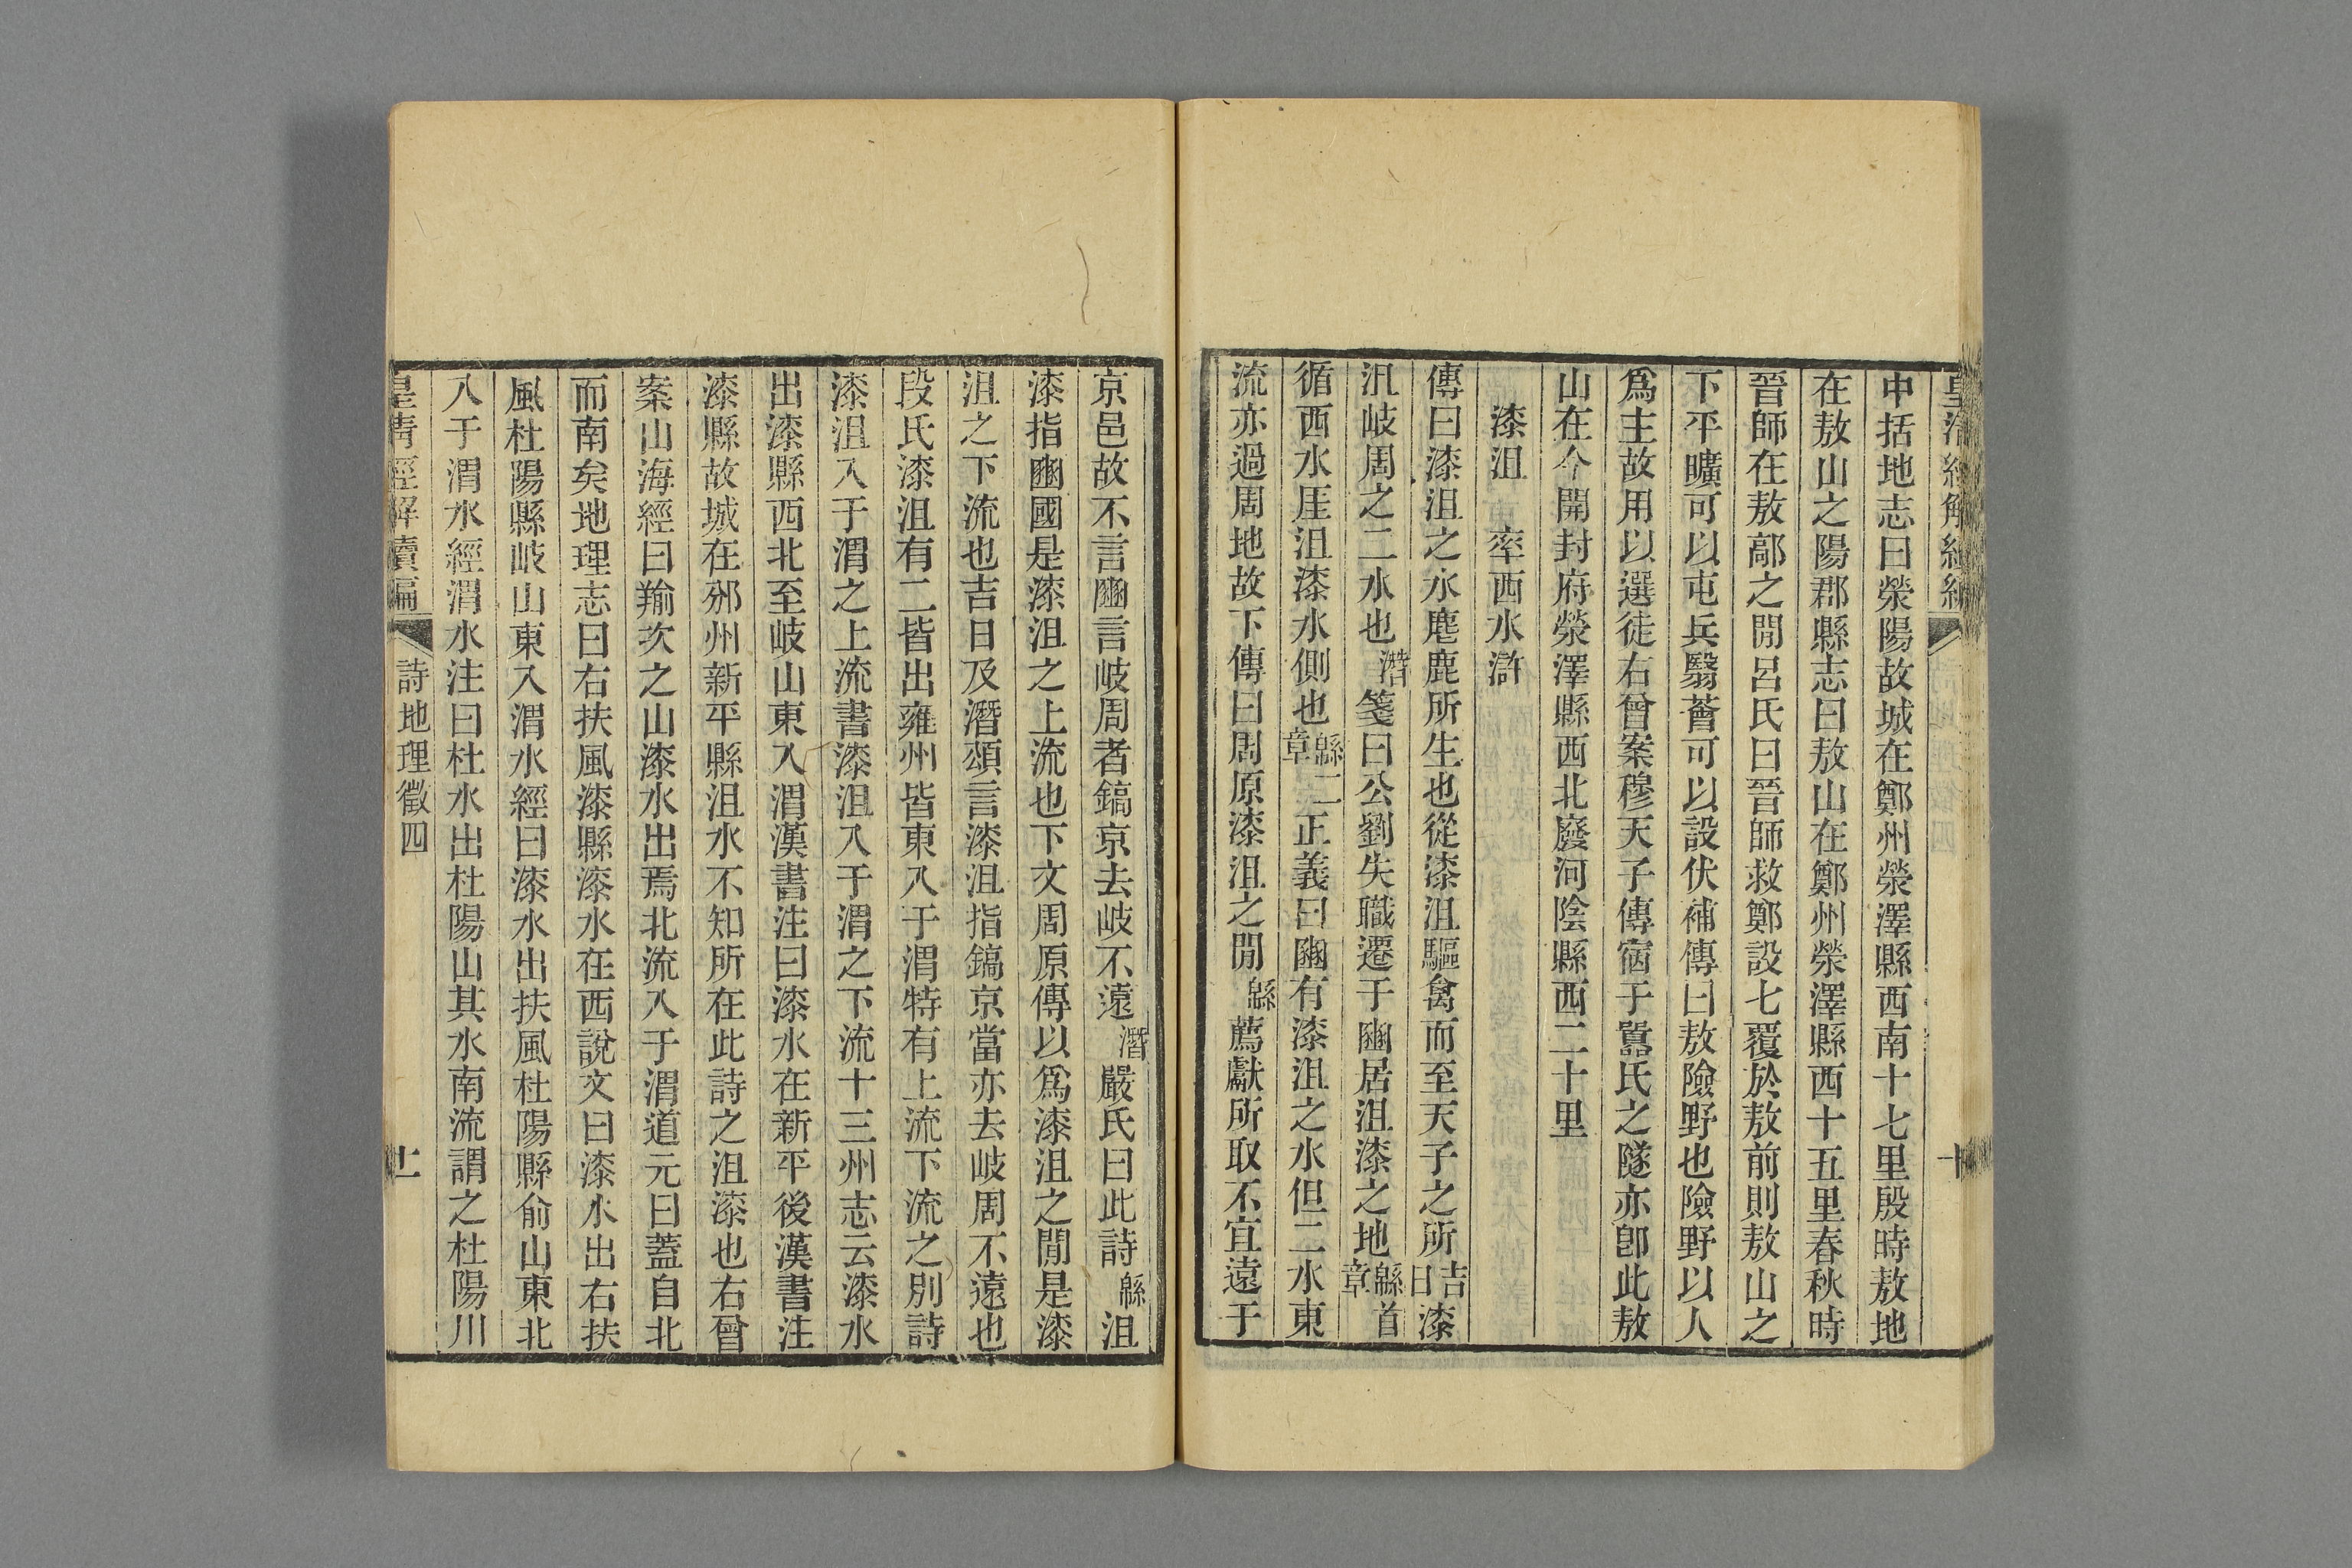 中括地志曰滎陽故城在鄭州滎澤縣西南十七里殷時敖地
在敖山之陽郡縣志曰敖山在鄭州滎澤縣西十五里春秋時
晉師在敖鄗之閒呂氏曰晉師救鄭設七覆於敖前則敖山之
下平曠可以屯兵翳薈可以設伏補傳曰敖險野也險野以人
爲主故用以選徒右曾案穆天子傳宿于囂氏之隧亦卽此敖
山在今開封府滎澤縣西北廢河陰縣西二十里
漆沮　率西水滸
傳曰漆沮之水麀鹿所生也從漆沮驅禽而至天子之所吉日漆
沮岐周之二水也潛箋曰公劉失職遷于豳居沮漆之地緜首章
循西水厓沮漆水側也緜二章正義曰豳有漆沮之水但二水東
流亦過周地故下傳曰周原漆沮之閒緜薦獻所取不宜遠于
京邑故不言豳言岐周者鎬京去岐不遠潛嚴氏曰此詩緜沮
漆指豳國是漆沮之上流也下文周原傳以爲漆沮之閒是漆
沮之下流也吉日及潛頌言漆沮指鎬京當亦去岐周不遠也
段氏漆沮有二皆出雍州皆東入于渭特有上流下流之別詩
漆沮入于渭之上流書漆沮入于渭之下流十三州志云漆水
出漆縣西北至岐山東入渭漢書注曰漆水在新平後漢書注
漆縣故城在邠州新平縣沮水不知所在此詩之沮漆也右曾
案山海經曰羭次之山漆水出焉北流入于渭道元曰蓋自北
而南矣地理志曰右扶風漆縣漆水在西說文曰漆水出右扶
風杜陽縣岐山東入渭水經曰漆水出扶風杜陽縣俞山東北
入于渭水經渭水注曰杜水出杜陽山其水南流謂之杜陽川
皇清經解續編　詩地理徵四　十一